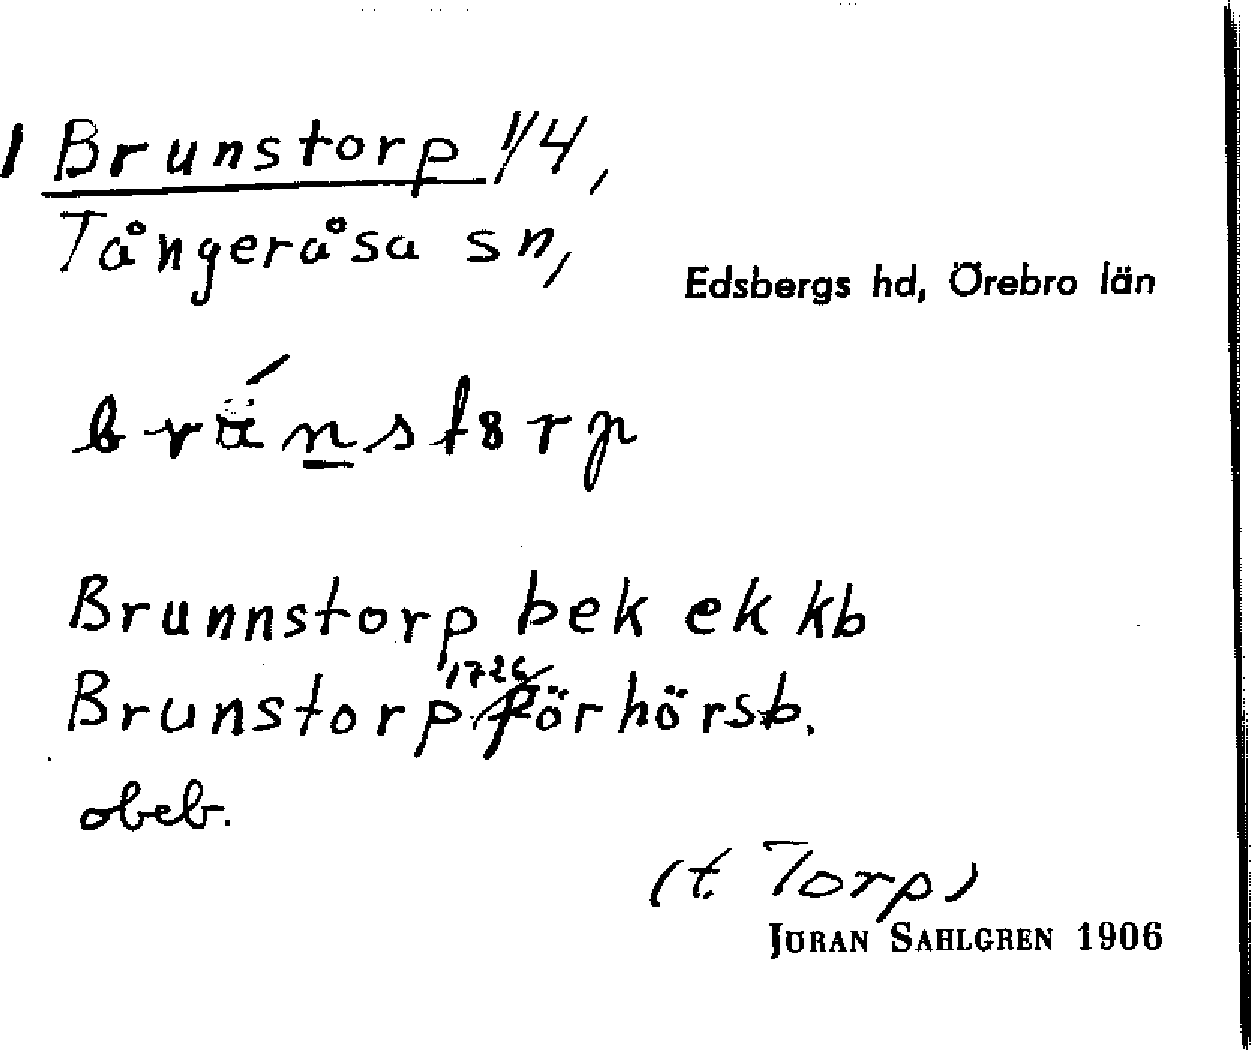 1 Brunstorp 1/4,
Tångeråsa sn,
Edsbergs hd, Örebro län
Brunnstorp bek ek kb
Brunstorp 1726 förhörsb.
obeb.
(t. Torp)
JÖRAN SAHLGREN 1906